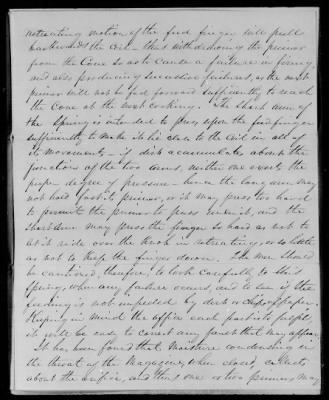 retreating motion of the feed finger will pull
backwards the Coil - thus withdrawing the primer
from the Cone so as to cause a failure in firing,
and also producing successive failures, as the next
primer will not be fed forward sufficiently to reach
the Cone at the next cocking. The short arm of
the Spring is intended to press upon the feed finger
sufficiently to make it lie close to the Coil in all of
its movements - if dirt accumulates about the
junction of the two arms, neither one exerts the
proper degree of pressure - hence the long arm may
not hold fast its primer, or it may press too hard
to permit the primer to pass under it, and the
short arm may press the finger so hard as not to
let it slide over the in retreating, or so little
as not to keep the finger down. The men should
be cautioned, therefore, to look carefully to this
spring, when any failure occurs, and to see if the
is not impeded by dirt or chips of paper.
Keeping in mind the office each part is to fulfil,
it will be easy to correct any fault that may appear.
It has been found that moisture condensing in
the throat of the Magazine, when closed, collects
about the orifice, and thus one or two primers may